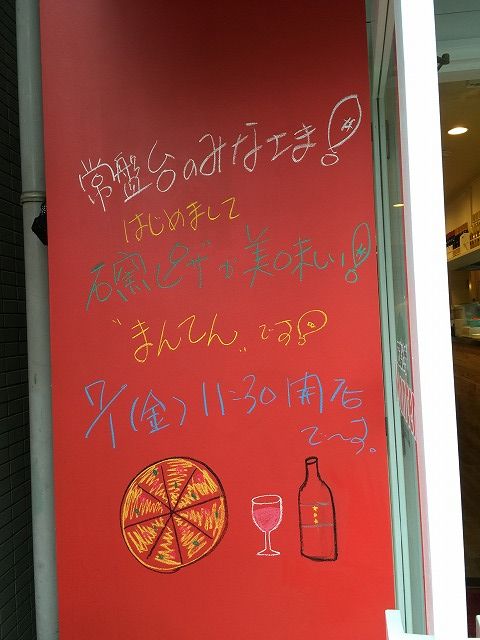 常盤台のみなさま！
はじめまして
石窯ピザが美味しい！
"まんてん"です！
7/1(金) 11:30開店
で〜す。